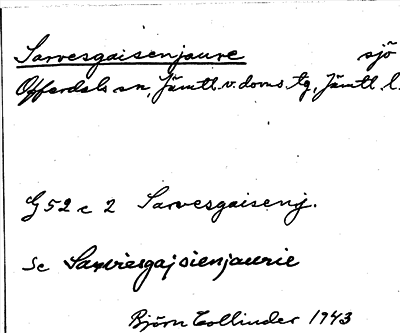 Sarvesgaisenjaure sjö
Offerdals sn, Jämtl. v. doms. tg, Jämtl. l.
G 52 c 2 Sarvesgaisenj.
Sc Sarviesgajsienjaurie
Björn Collinder 1943